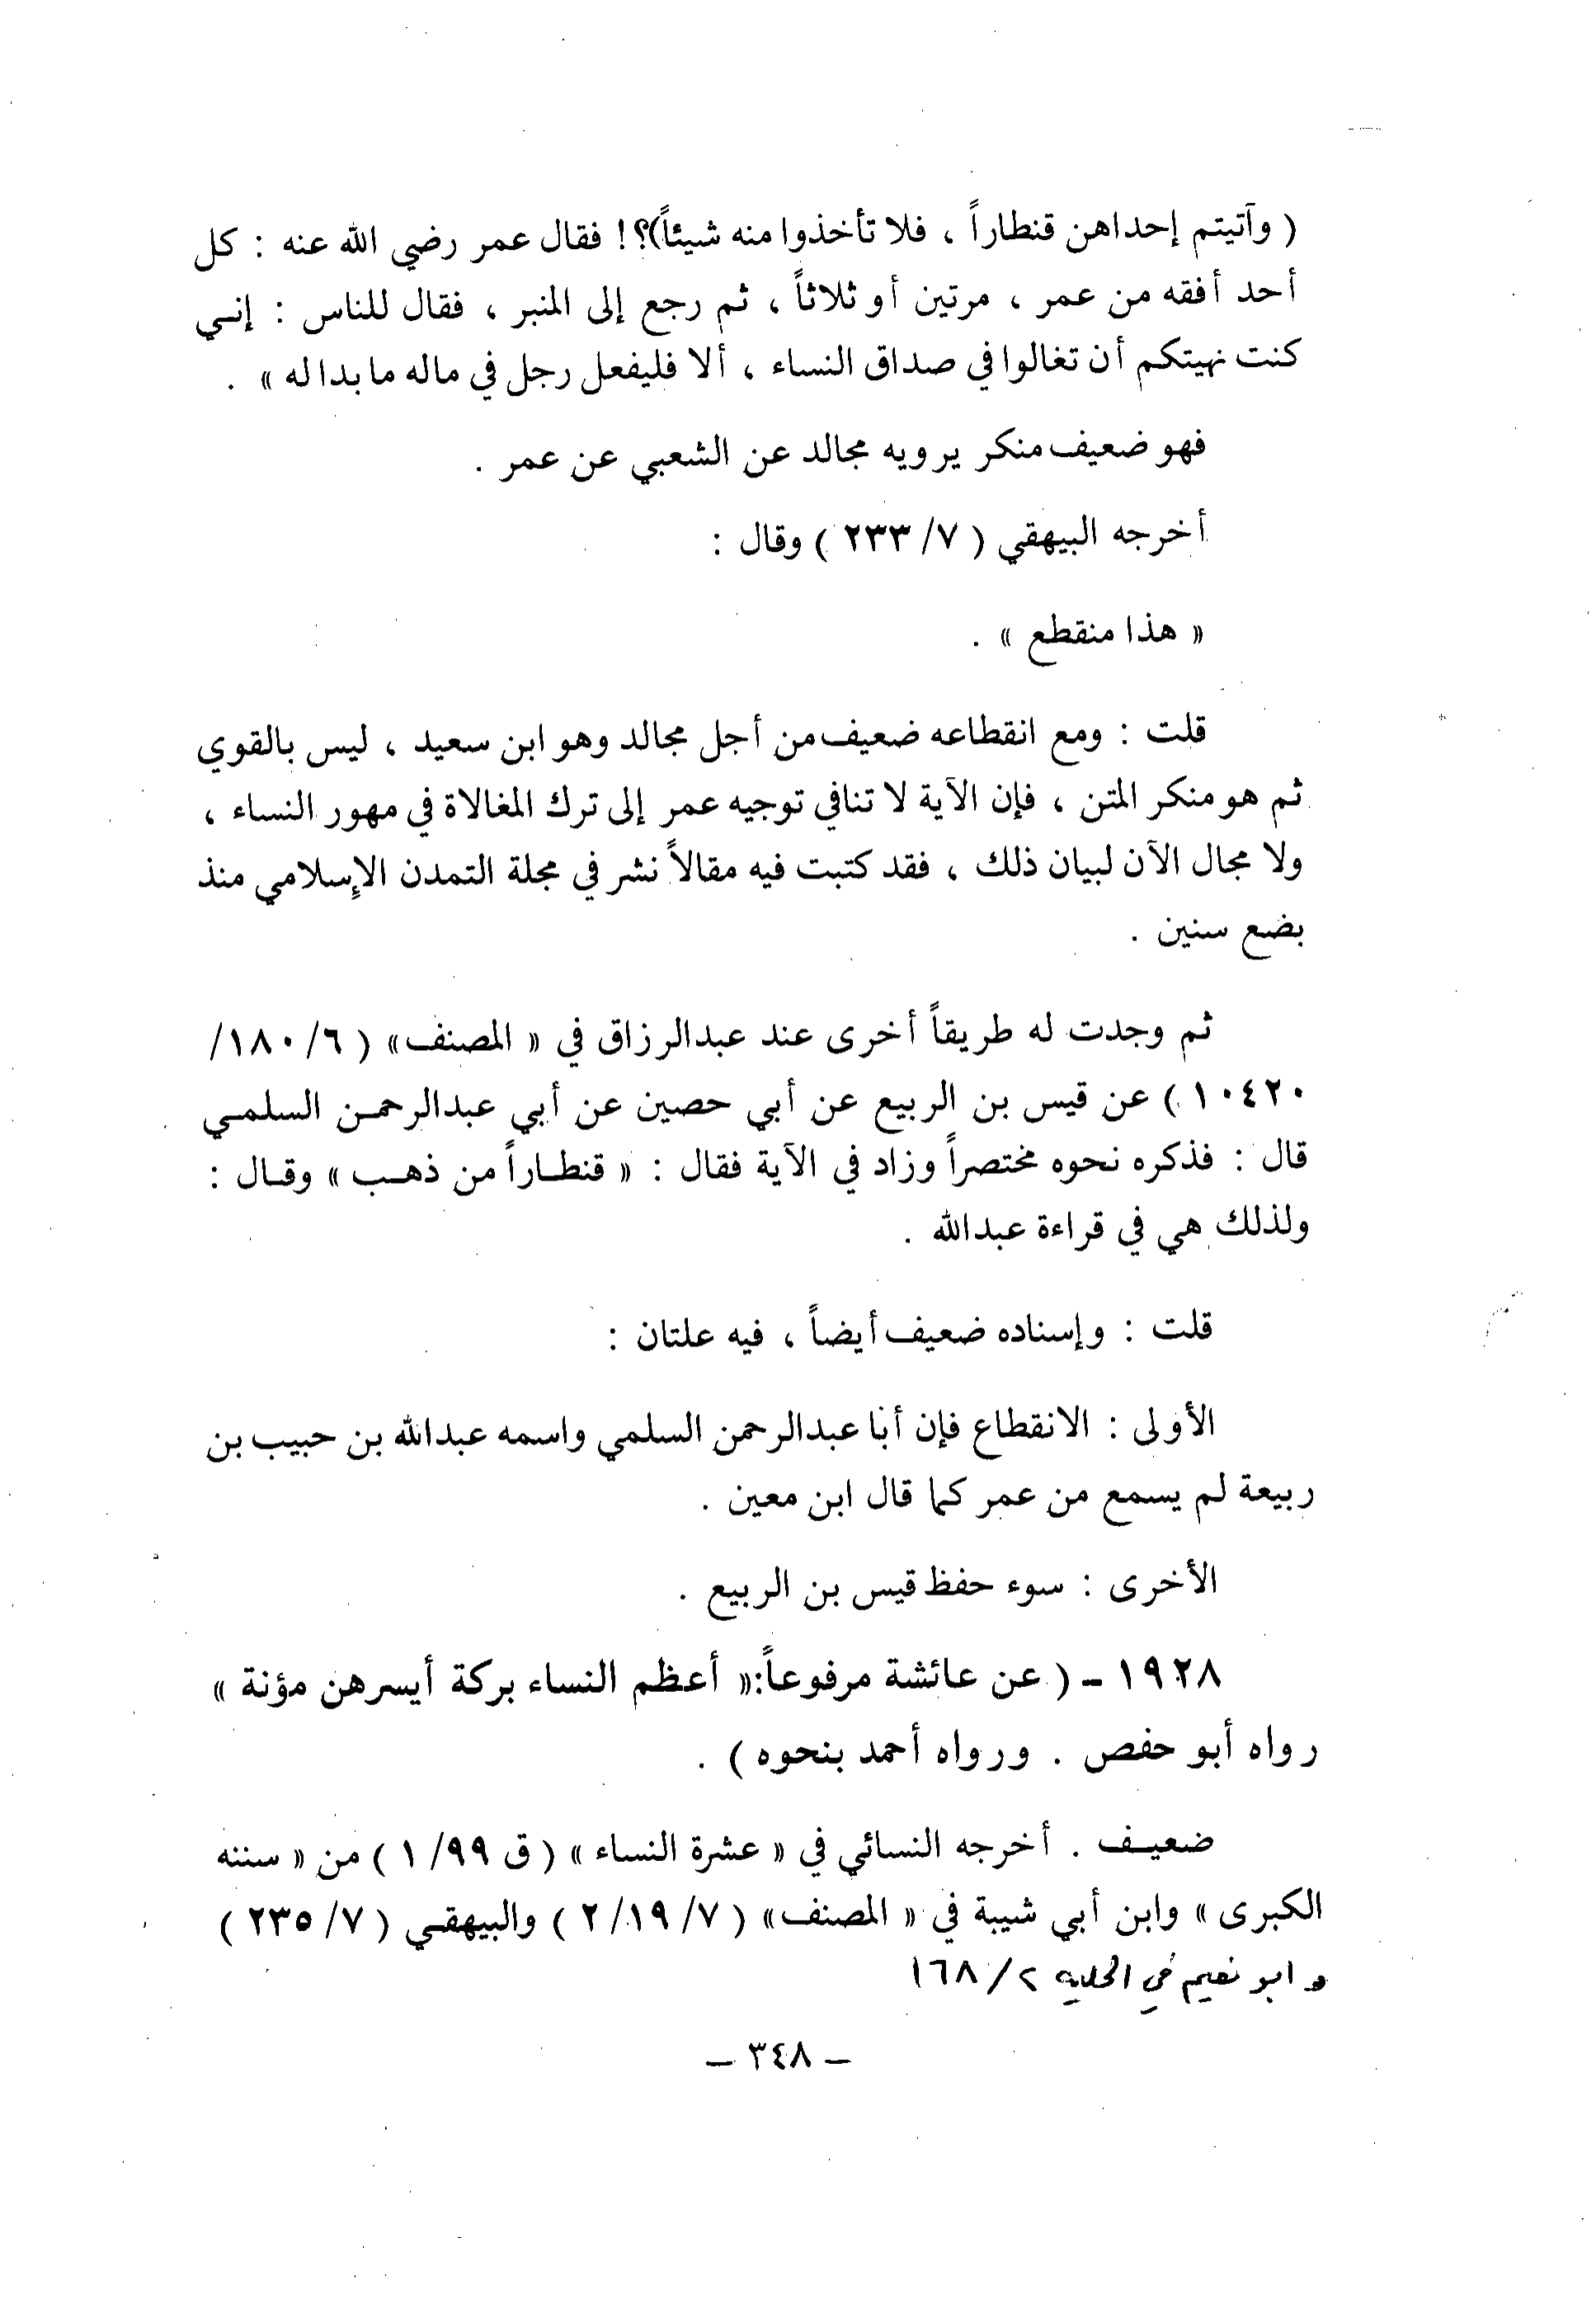 ( وآتيتم إحداهن قنطاراً ، فلا تأخذوا منه شيئاً)؟! فقال عمر رضي الله عنه : كل
أحد أفقه من عمر ، مرتين أو ثلاثاً ، ثم رجع إلى المنبر ، فقال للناس : إنـي
كنت نهيتكم أن تغالوا في صداق النساء ، ألا فليفعل رجل في ماله ما بدا له » .
فهو ضعيف منكر يرويه مجالد عن الشعبي عن عمر .
أخرجه البيهقي ( ٧/ ٢٣٣ ) وقال :
« هذا منقطع » .
قلت : ومع انقطاعه ضعيف من أجل مجالد وهو ابن سعيد ، ليس بالقوي
ثم هو منكر المتن ، فإن الآية لا تنافي توجيه عمر إلى ترك المغالاة في مهور النساء ،
ولا مجال الآن لبيان ذلك ، فقد كتبت فيه مقالاً نشر في مجلة التمدن الإسلامي منذ
بضع سنين .
ثم وجدت له طريقاً أخرى عند عبدالرزاق في « المصنف» ( ٦/ ١٨٠/
١٠٤٢٠ ) عن قيس بن الربيع عن أبي حصين عن أبي عبدالرحمـن السلمـي
قال : فذكره نحوه مختصراً وزاد في الآية فقال : « قنطـاراً من ذهـب » وقـال :
ولذلك هي في قراءة عبدالله .
قلت : وإسناده ضعيف أيضاً ، فيه علتان :
الأولى : الانقطاع فإن أبا عبدالرحمن السلمي واسمه عبدالله بن حبيب بن
ربيعة لم يسمع من عمر كما قال ابن معين .
الأخرى : سوء حفظ قيس بن الربيع .
١٩٢٨ - ( عن عائشة مرفوعاً:« أعظم النساء بركة أيسرهن مؤنة »
رواه أبو حفص . ورواه أحمد بنحوه ) .
ضعيـف . أخرجه النسائي في « عشرة النساء » ( ق ٩٩/ ١ ) من « سننه
الكبرى » وابن أبي شيبة في « المصنف» ( ٧/ ١٩/ ٢ ) والبيهقـي ( ٧/ ٢٣٥ )
و ابو نعيم في الحليه ٢/ ١٦٨
– ٣٤٨ –